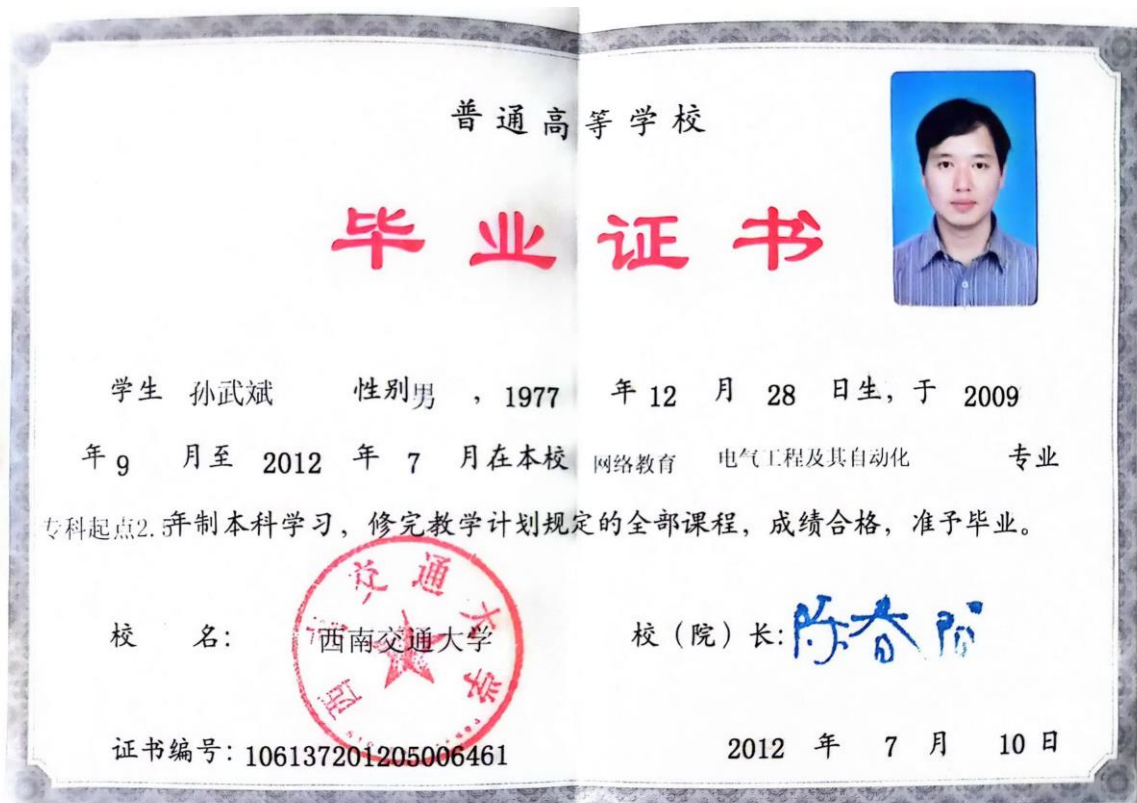 普通高等学校
毕业证书
学生 孙武斌 性别男 ，1977 年 12 月 28 日生，于 2009
年 9 月至 2012 年 7 月在本校 网络教育 电气工程及其自动化 专业
专科起点2.5年制本科学习，修完教学计划规定的全部课程，成绩合格，准予毕业。
西南交通大学
校 名： 西南交通大学 校（院）长：陈春阳
证书编号：106137201205006461 2012 年 7 月 10 日